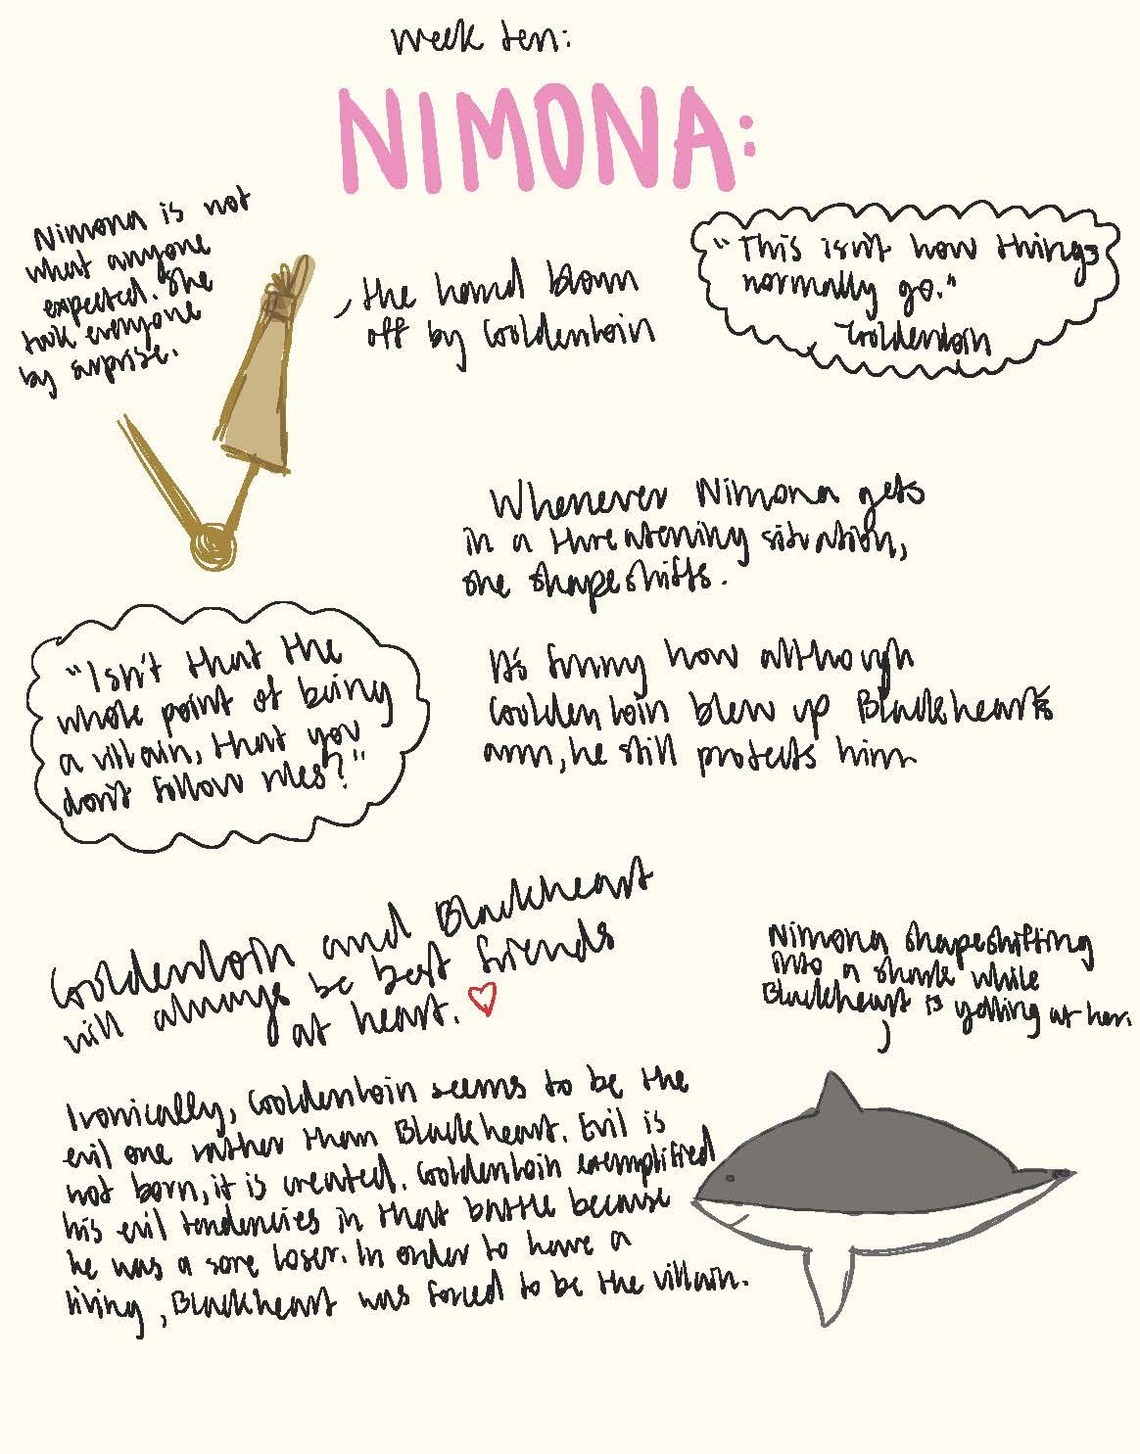 week ten:
NIMONA:
Nimona is not
what anyone
expected. She
took everyone
by surprise.
the hand blown
off by Goldenloin
"This isn't how things
normally go."
-Goldenloin
Whenever Nimona gets
in a threatening situation,
she shapeshifts.
"Isn't that the
whole point of being
a villain, that you
don't follow rules?"
It's funny how although
Goldenloin blew up Blackheart's
arm, he still protects him
Goldenloin and Blackheart
will always be best friends
at heart.
Nimona shapeshifting
into a shark while
Blackheart is yelling at her.
Ironically, Goldenloin seems to be the
evil one rather than Blackheart. Evil is
not born, it is created. Goldenloin exemplified
his evil tendencies in that battle because
he was a sore loser. In order to have a
living, Blackheart was forced to be the villain.